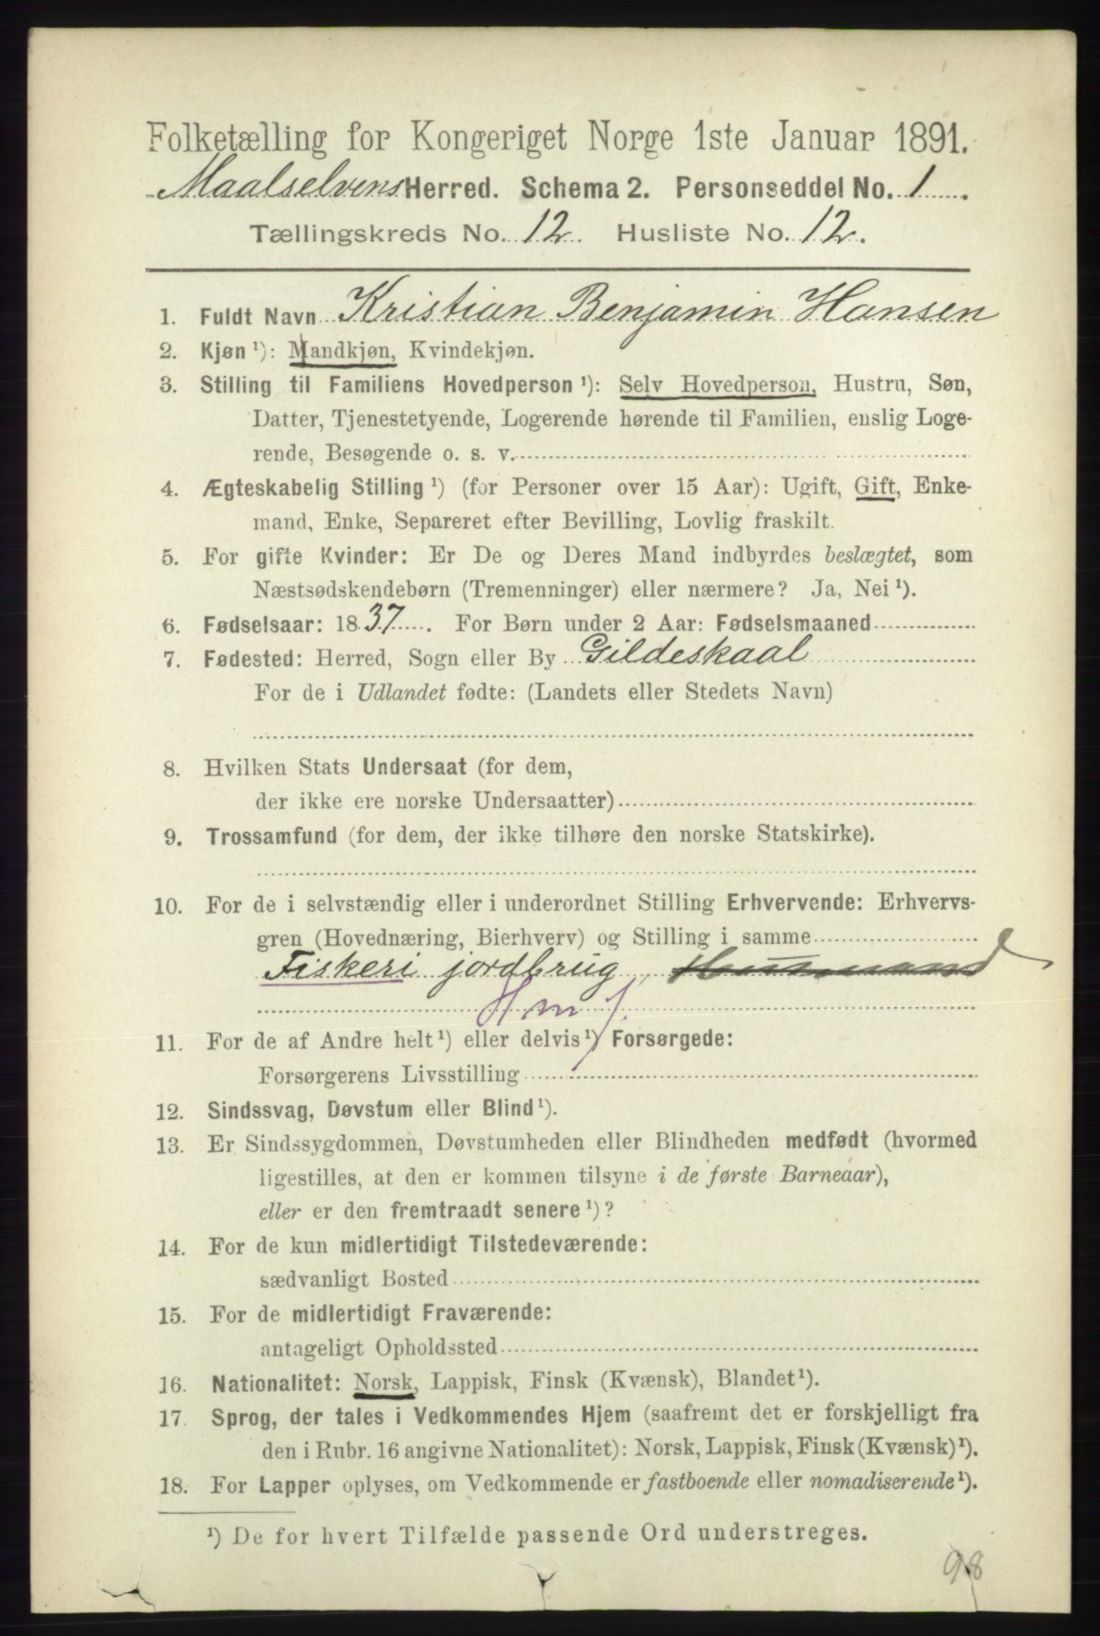 Folketælling for Kongeriget Norge 1ste Januar 1891.
Maalselvens Herred. Schema 2. Personseddel No. 1.
Tællingskreds No. 12. Husliste No. 12.
1. Fuldt Navn Kristian Benjamin Hansen
2. Kjøn ¹): Mandkjøn, Kvindekjøn.
3. Stilling til Familiens Hovedperson ¹): Selv Hovedperson, Hustru, Søn,
Datter, Tjenestetyende, Logerende hørende til Familien, enslig Loge-
rende, Besøgende o. s. v.
4. Ægteskabelig Stilling ¹) (for Personer over 15 Aar): Ugift, Gift, Enke-
mand, Enke, Separeret efter Bevilling, Lovlig fraskilt.
5. For gifte Kvinder: Er De og Deres Mand indbyrdes beslægtet, som
Næstsødskendebørn (Tremenninger) eller nærmere? Ja, Nei ¹).
6. Fødselsaar: 1837. For Børn under 2 Aar: Fødselsmaaned
7. Fødested: Herred, Sogn eller By Gildeskaal
For de i Udlandet fødte: (Landets eller Stedets Navn)
8. Hvilken Stats Undersaat (for dem,
der ikke ere norske Undersaatter)
9. Trossamfund (for dem, der ikke tilhøre den norske Statskirke).
10. For de i selvstændig eller i underordnet Stilling Erhvervende: Erhvervs-
gren (Hovednæring, Bierhverv) og Stilling i samme
Fiskeri jordbrug, Husmand
Hm f.
11. For de af Andre helt ¹) eller delvis ¹) Forsørgede:
Forsørgerens Livsstilling
12. Sindssvag, Døvstum eller Blind ¹).
13. Er Sindssygdommen, Døvstumheden eller Blindheden medfødt (hvormed
ligestilles, at den er kommen tilsyne i de første Barneaar),
eller er den fremtraadt senere ¹)?
14. For de kun midlertidigt Tilstedeværende:
sædvanligt Bosted
15. For de midlertidigt Fraværende:
antageligt Opholdssted
16. Nationalitet: Norsk, Lappisk, Finsk (Kvænsk), Blandet ¹).
17. Sprog, der tales i Vedkommendes Hjem (saafremt det er forskjelligt fra
den i Rubr. 16 angivne Nationalitet): Norsk, Lappisk, Finsk (Kvænsk) ¹).
18. For Lapper oplyses, om Vedkommende er fastboende eller nomadiserende ¹).
¹) De for hvert Tilfælde passende Ord understreges.
98